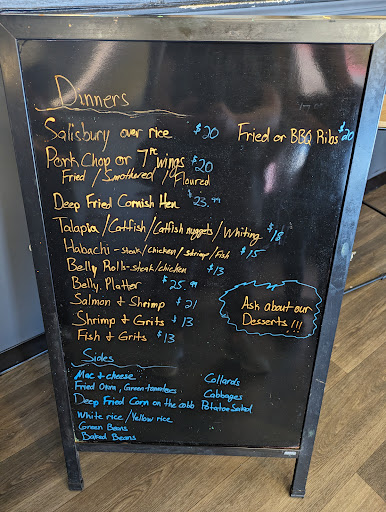 Dinners
Salisbury over rice $20
Fried or BBQ Ribs $20
Pork Chop or 7pc wings $20
Fried / Smothered / Floured
Deep Fried Cornish Hen $23.99
Talapia/Catfish/Catfish nuggets/Whiting $18
Habachi - steak/chicken/shrimp/Fish $15
Belly Rolls - steak/chicken $13
Belly Platter $25.99
Salmon & Shrimp $21
Shrimp & Grits $13
Fish & Grits $13
Ask about our
Desserts !!!
Sides
Mac & cheese
Fried Okra, Green tomatoes
Deep Fried Corn on the cobb
White rice/Yellow rice
Green Beans
Baked Beans
Collards
Cabbages
Potatoe Salad